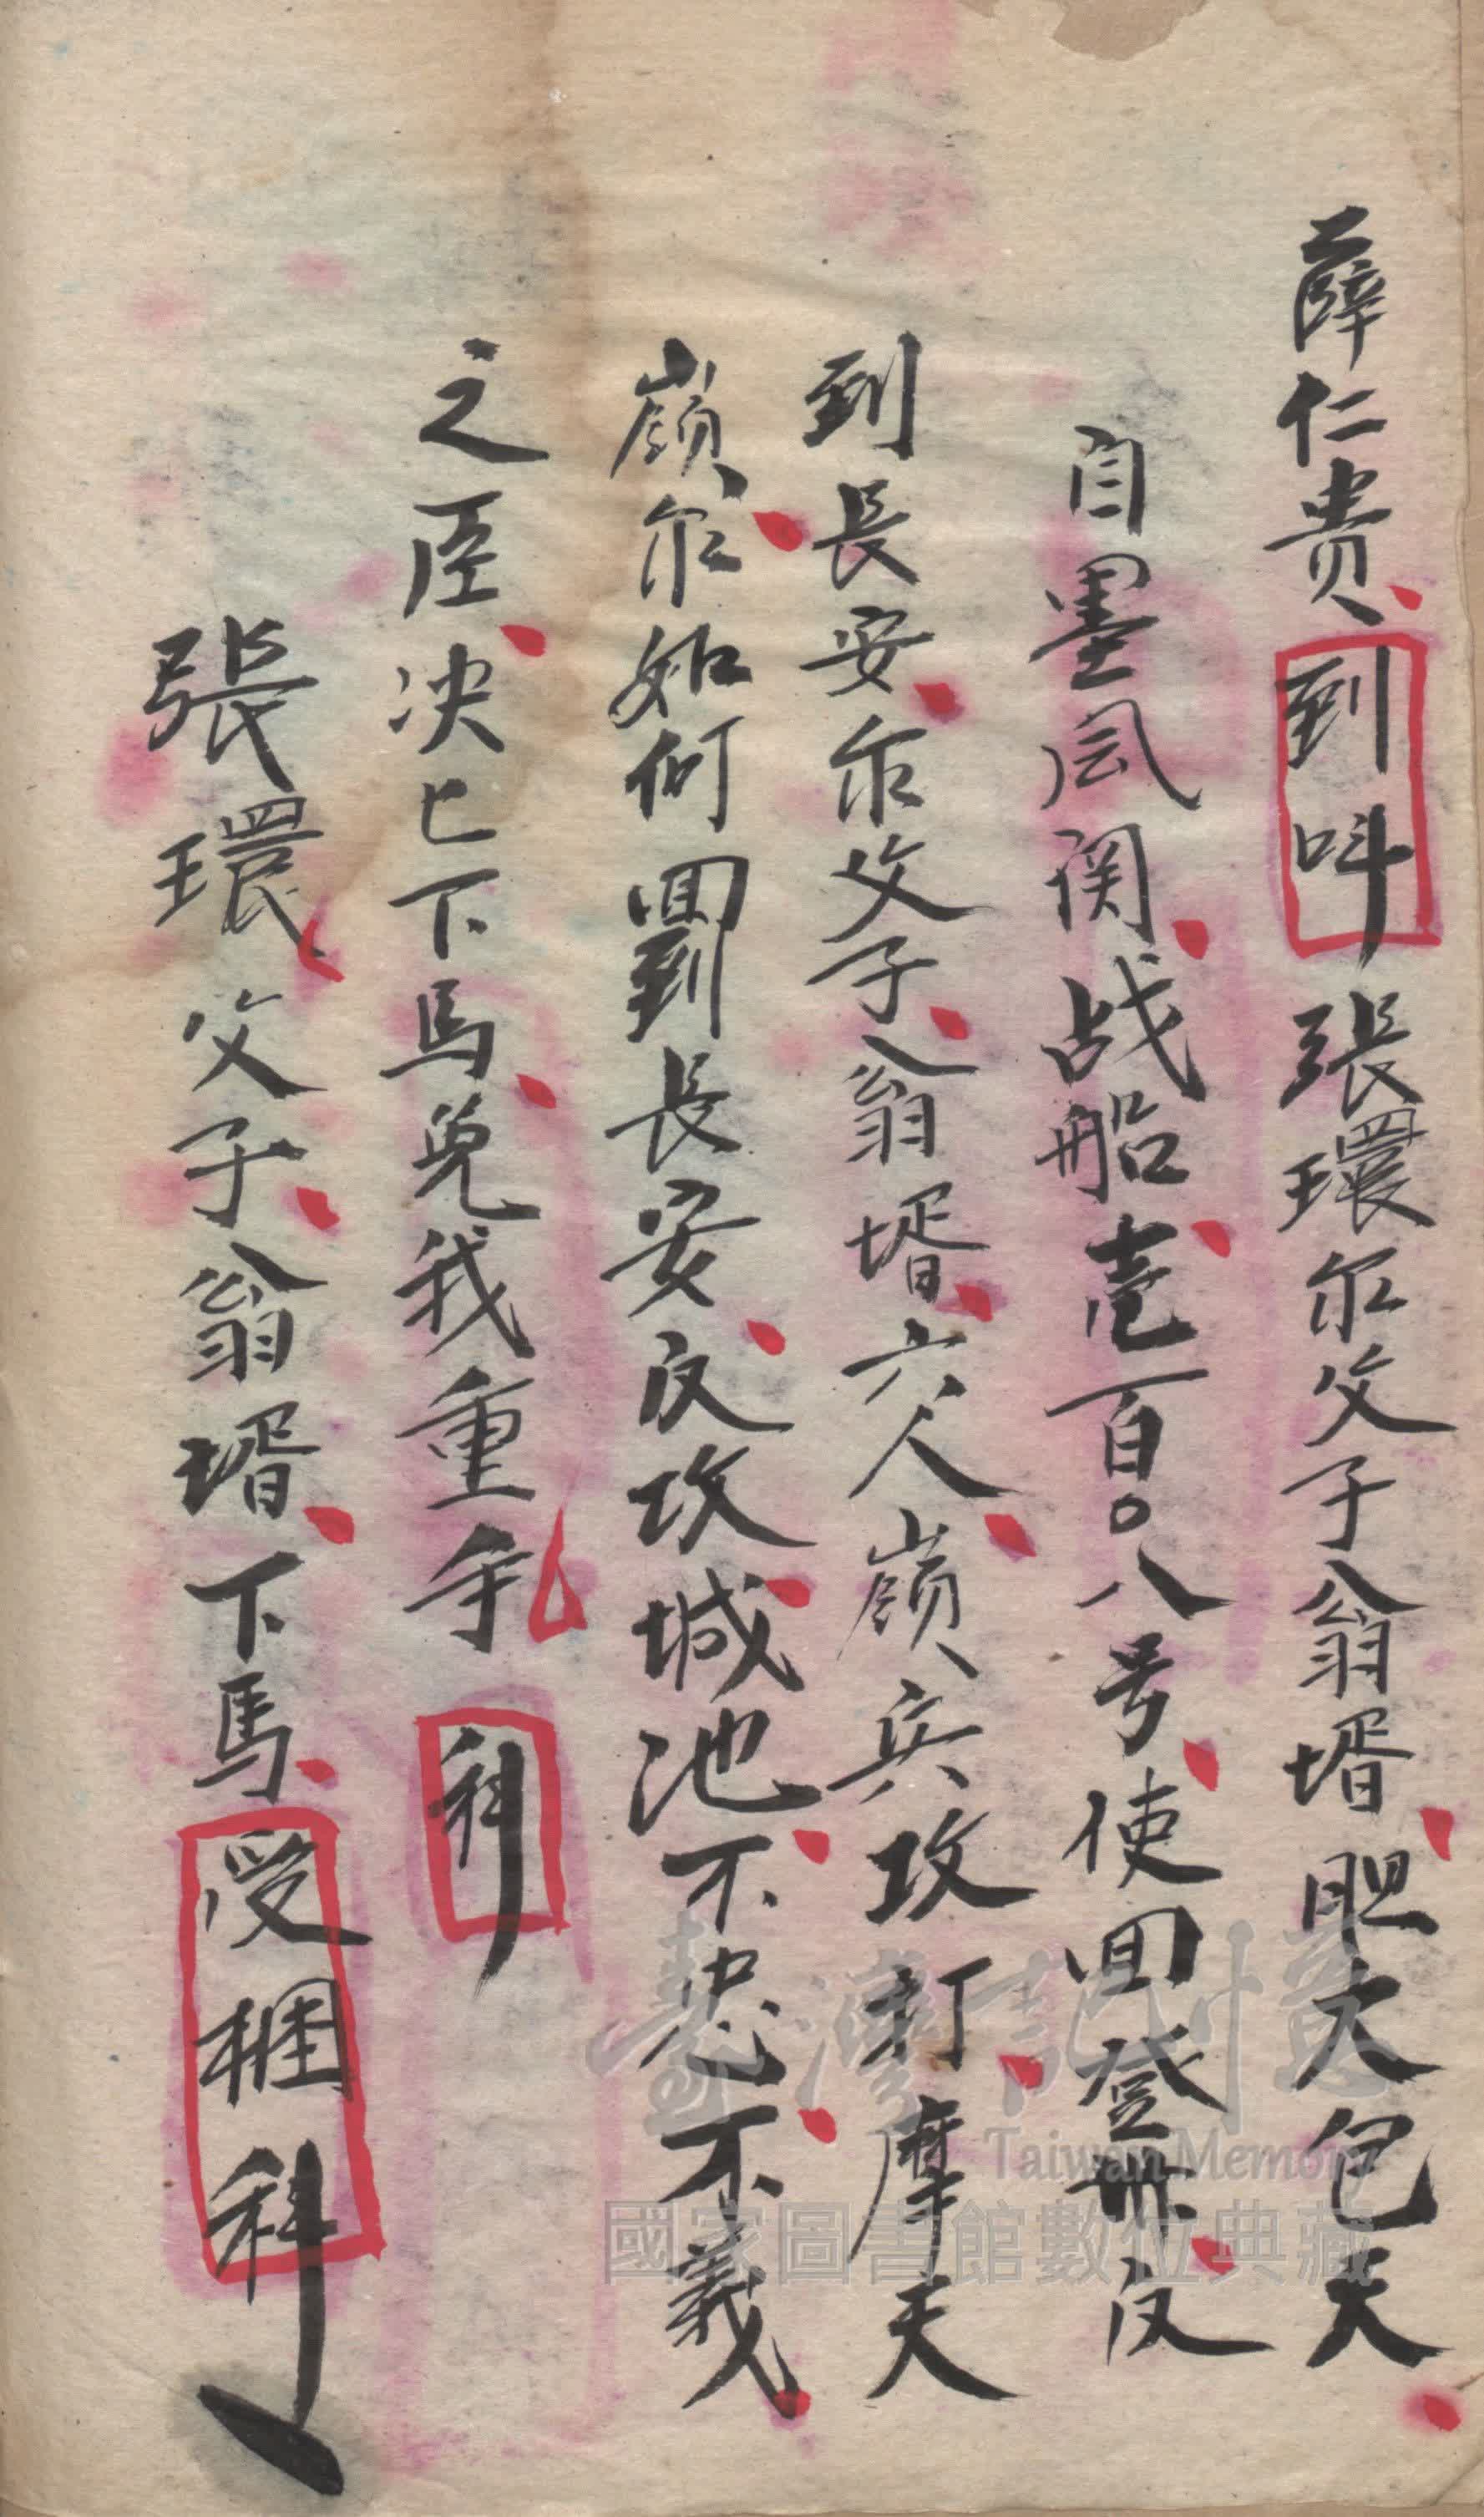 薛仁贵到呌張環尔父子翁壻胆大包天
自墨风関战船壱百〇八号使回登州反
到長安尔父子翁壻六人嶺兵攻打摩天
嶺尔如何回到長安反攻城池不忠不義
之臣决乜下馬免我重手 科
張環父子翁壻下馬受梱科
臺灣記憶
Taiwan Memory
國家圖書館數位典藏